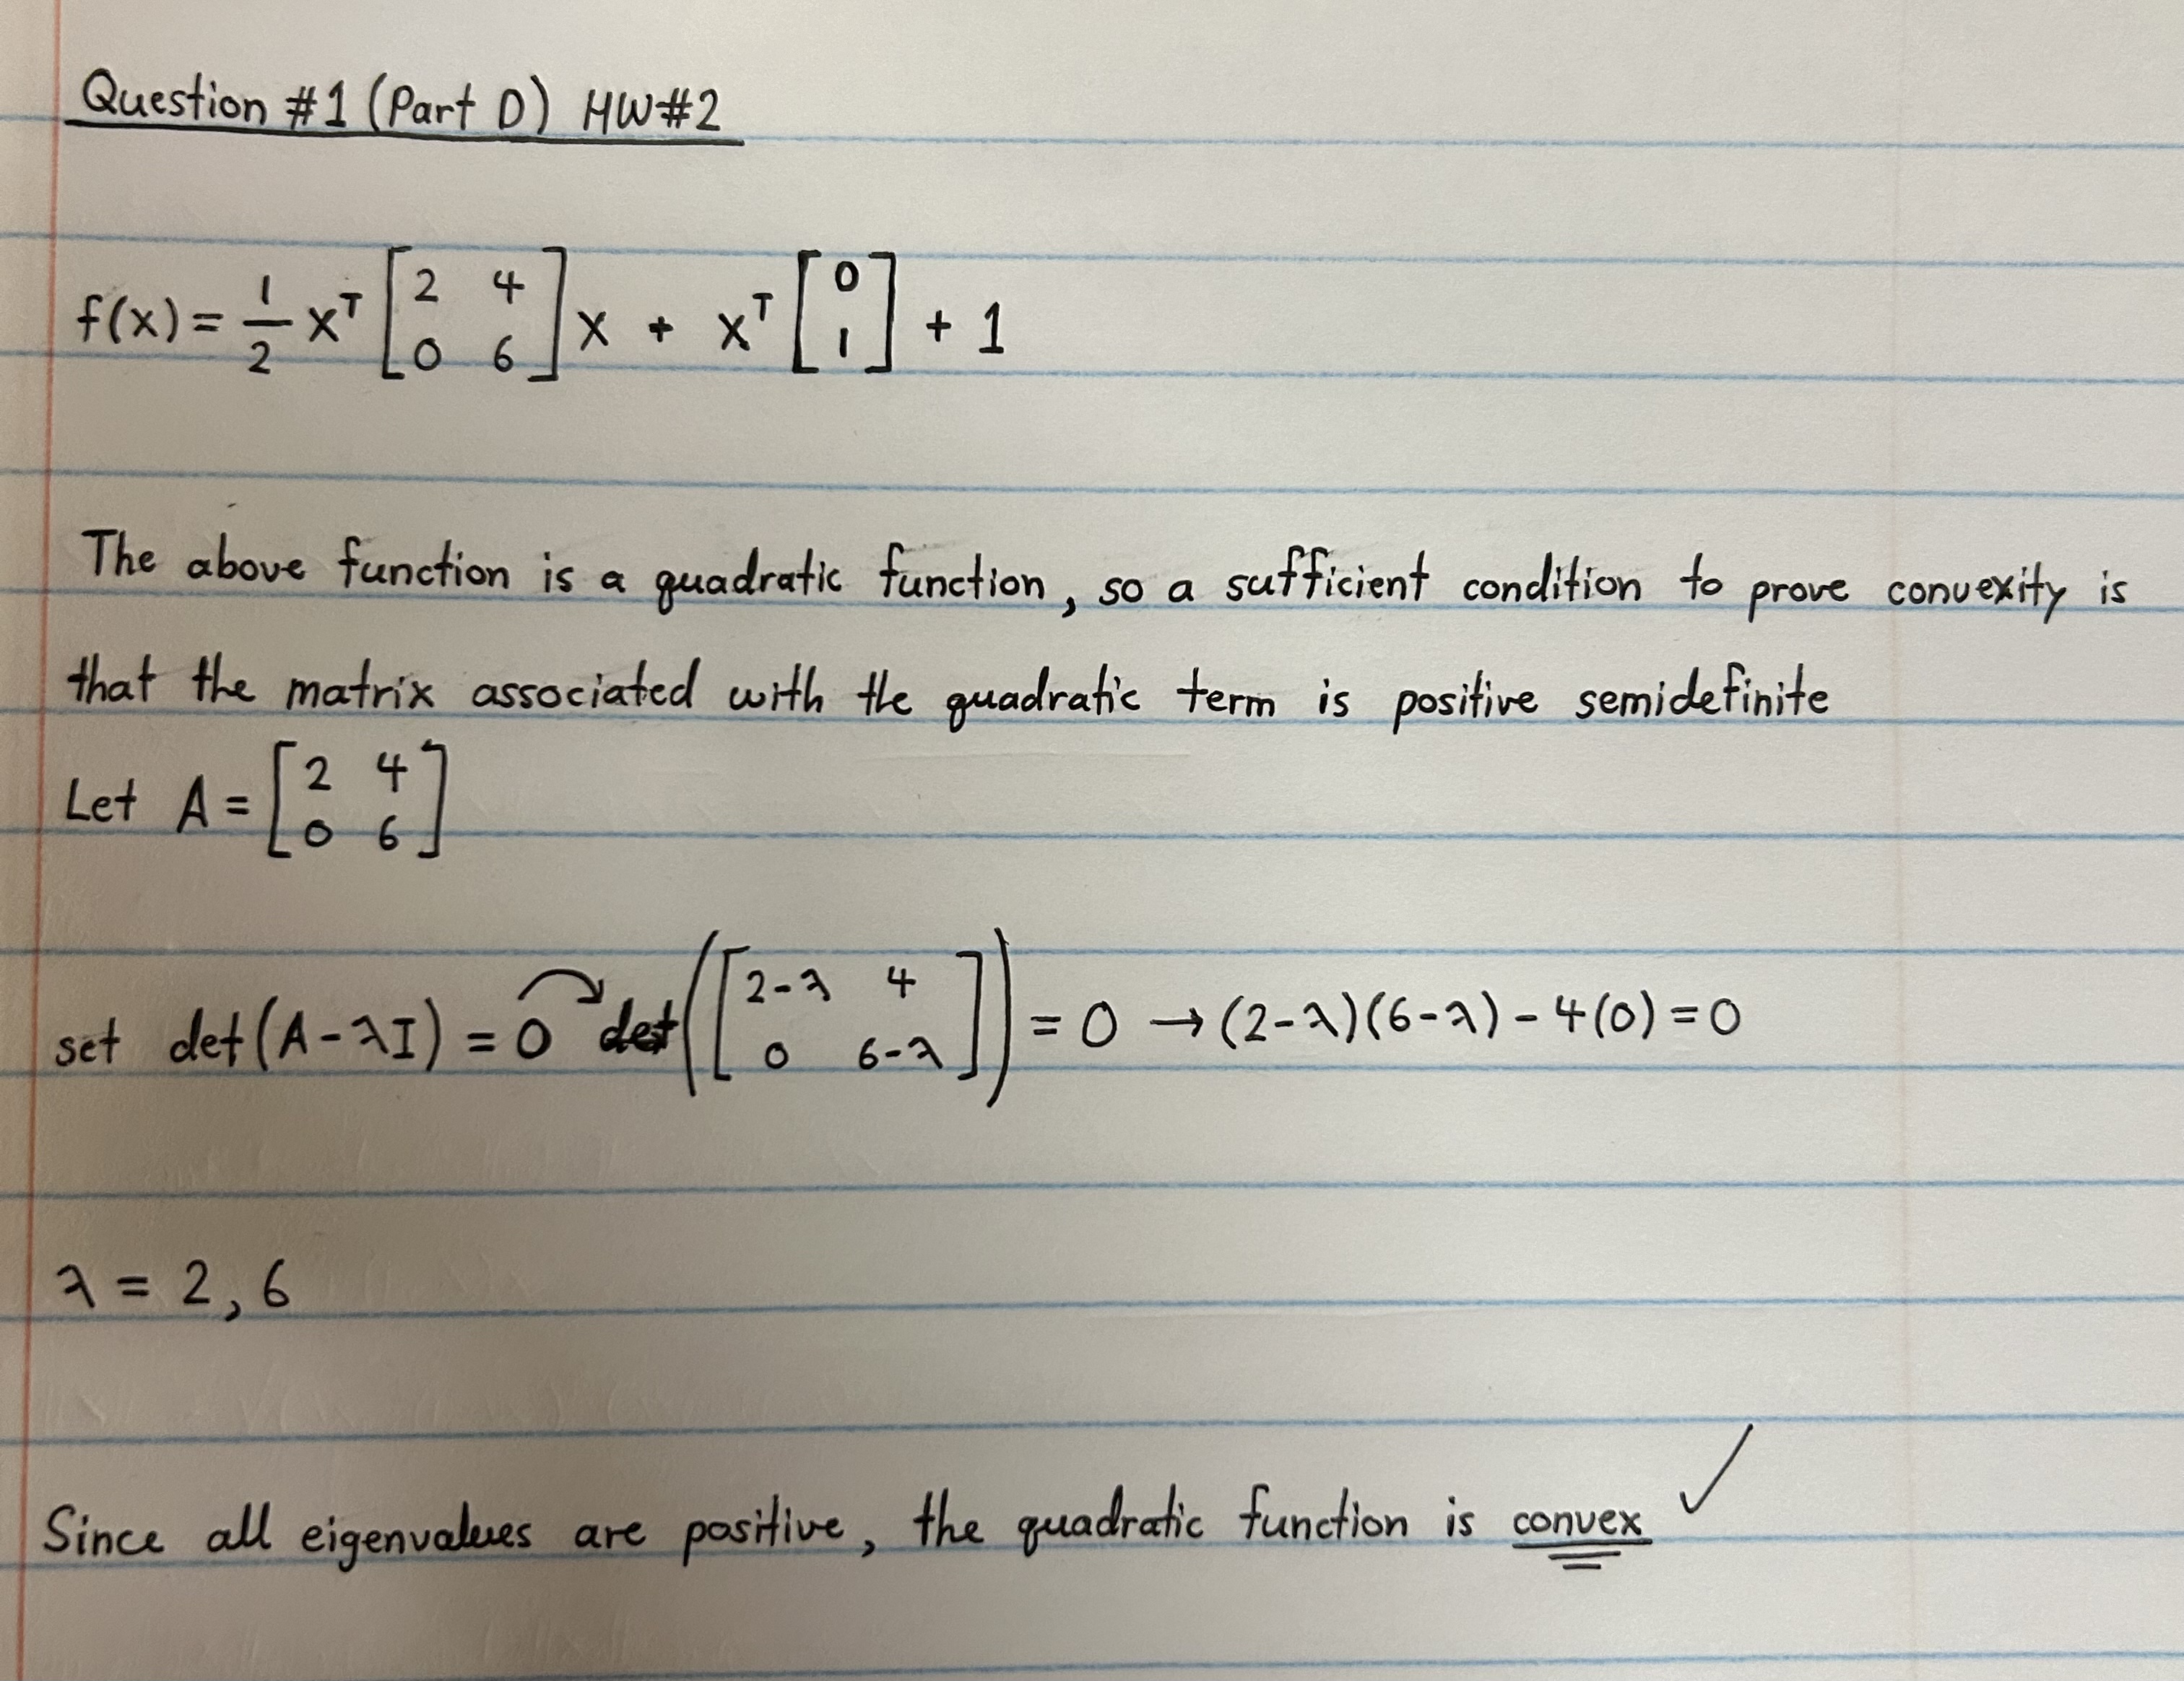 Question #1 (Part D) HW#2
f(x) = 1/2 xᵀ [2 4; 0 6] x + xᵀ [0; 1] + 1
The above function is a quadratic function, so a sufficient condition to prove convexity is
that the matrix associated with the quadratic term is positive semidefinite
Let A = [2 4; 0 6]
set det(A-λI) = 0 ↷ det([2-λ 4; 0 6-λ]) = 0 → (2-λ)(6-λ) - 4(0) = 0
λ = 2, 6
Since all eigenvalues are positive, the quadratic function is convex ✓